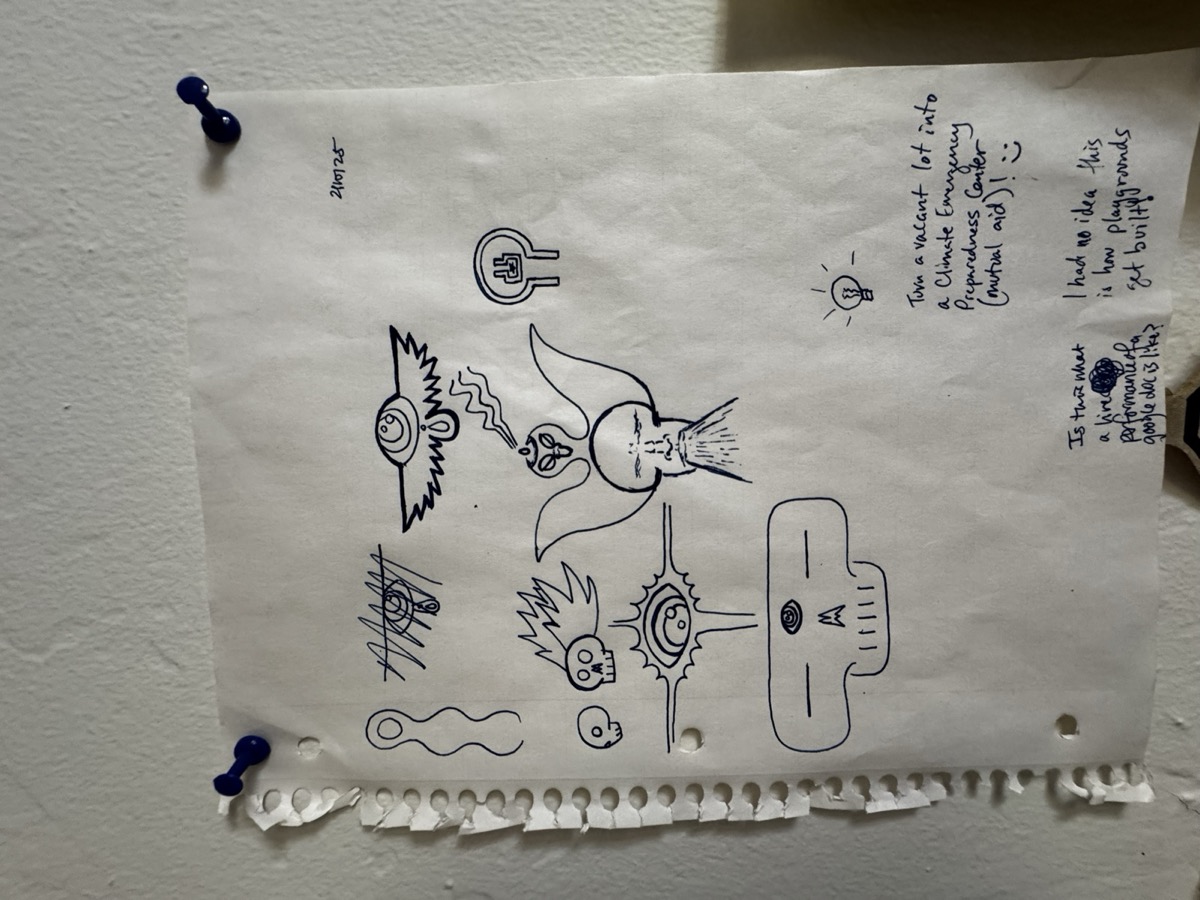 2/10/25
Turn a vacant lot into
a Climate Emergency
Preparedness Center
(mutual aid)! :)
Is this what
a live
performance of a
google doc is like?
I had no idea this
is how playgrounds
get built!